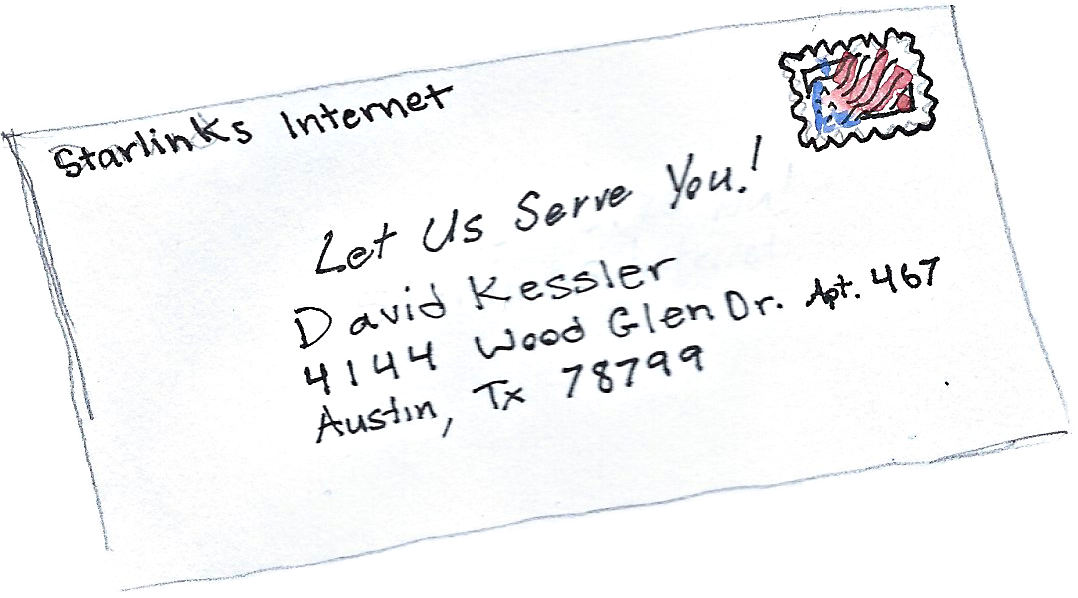 Starlinks Internet
Let Us Serve You!
David Kessler
4144 Wood Glen Dr. Apt. 467
Austin, Tx 78799